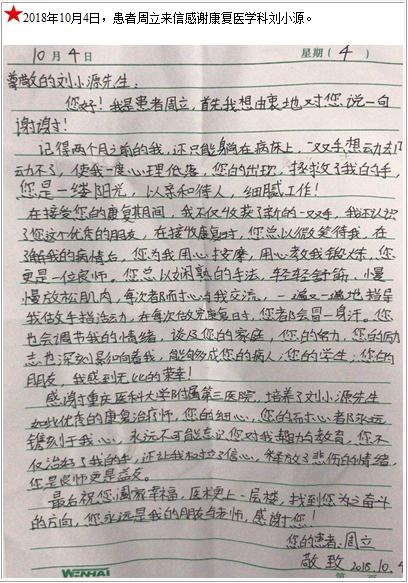 ★2018年10月4日，患者周立来信感谢康复医学科刘小源。
10月4日 星期（4）
尊敬的刘小源先生：
您好！我是患者周立，首先我想由衷地对您说一句
谢谢！
记得两个月之前的我，还只能躺在病床上，一双手想动去
动不了，使我一度心理低落，您的出现，拯救了我的手，
您是一缕阳光，以亲和待人，细腻工作！
在接受您的康复其间，我不仅收获了新的一双手，我还认识
了您这个优质的朋友，在接收康复时，您总以微笑待我，在
了解我的病情后，您为我用心按摩，用心教我锻炼，您
更是一位良师。您总以娴熟的手法，轻轻舒筋，慢
慢放松肌肉，每次都耐心与我交流，一遍又一遍地指导
我做好手指活动，在每次做完康复时，您都会冒一身汗。您
也会调节我的情绪，谈及您的家庭，您的努力，您的励
志也深刻影响着我，能够成您的病人，您的学生，您的
朋友，我感到无比的荣幸！
感谢重庆医科大学附属第三医院，培养了刘小源先生
如此优质的康复治疗师，您的细心，您的耐心都永远
镌刻于我心，永远不可能忘记您对我辅助与教育，您不
仅治好了我的手，还让我树立了信心，释放了悲伤的情绪，
您是良师更是益友。
最后祝您阖家幸福，医术更上一层楼，找到您为之奋斗
的方向，您永远是我的朋友与老师，感谢您！
您的患者：周立
敬致 2018.10.4
WENHAI